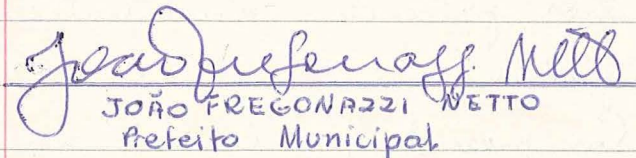 João Fregonazzi Netto
JOÃO FREGONAZZI NETTO
Prefeito Municipal